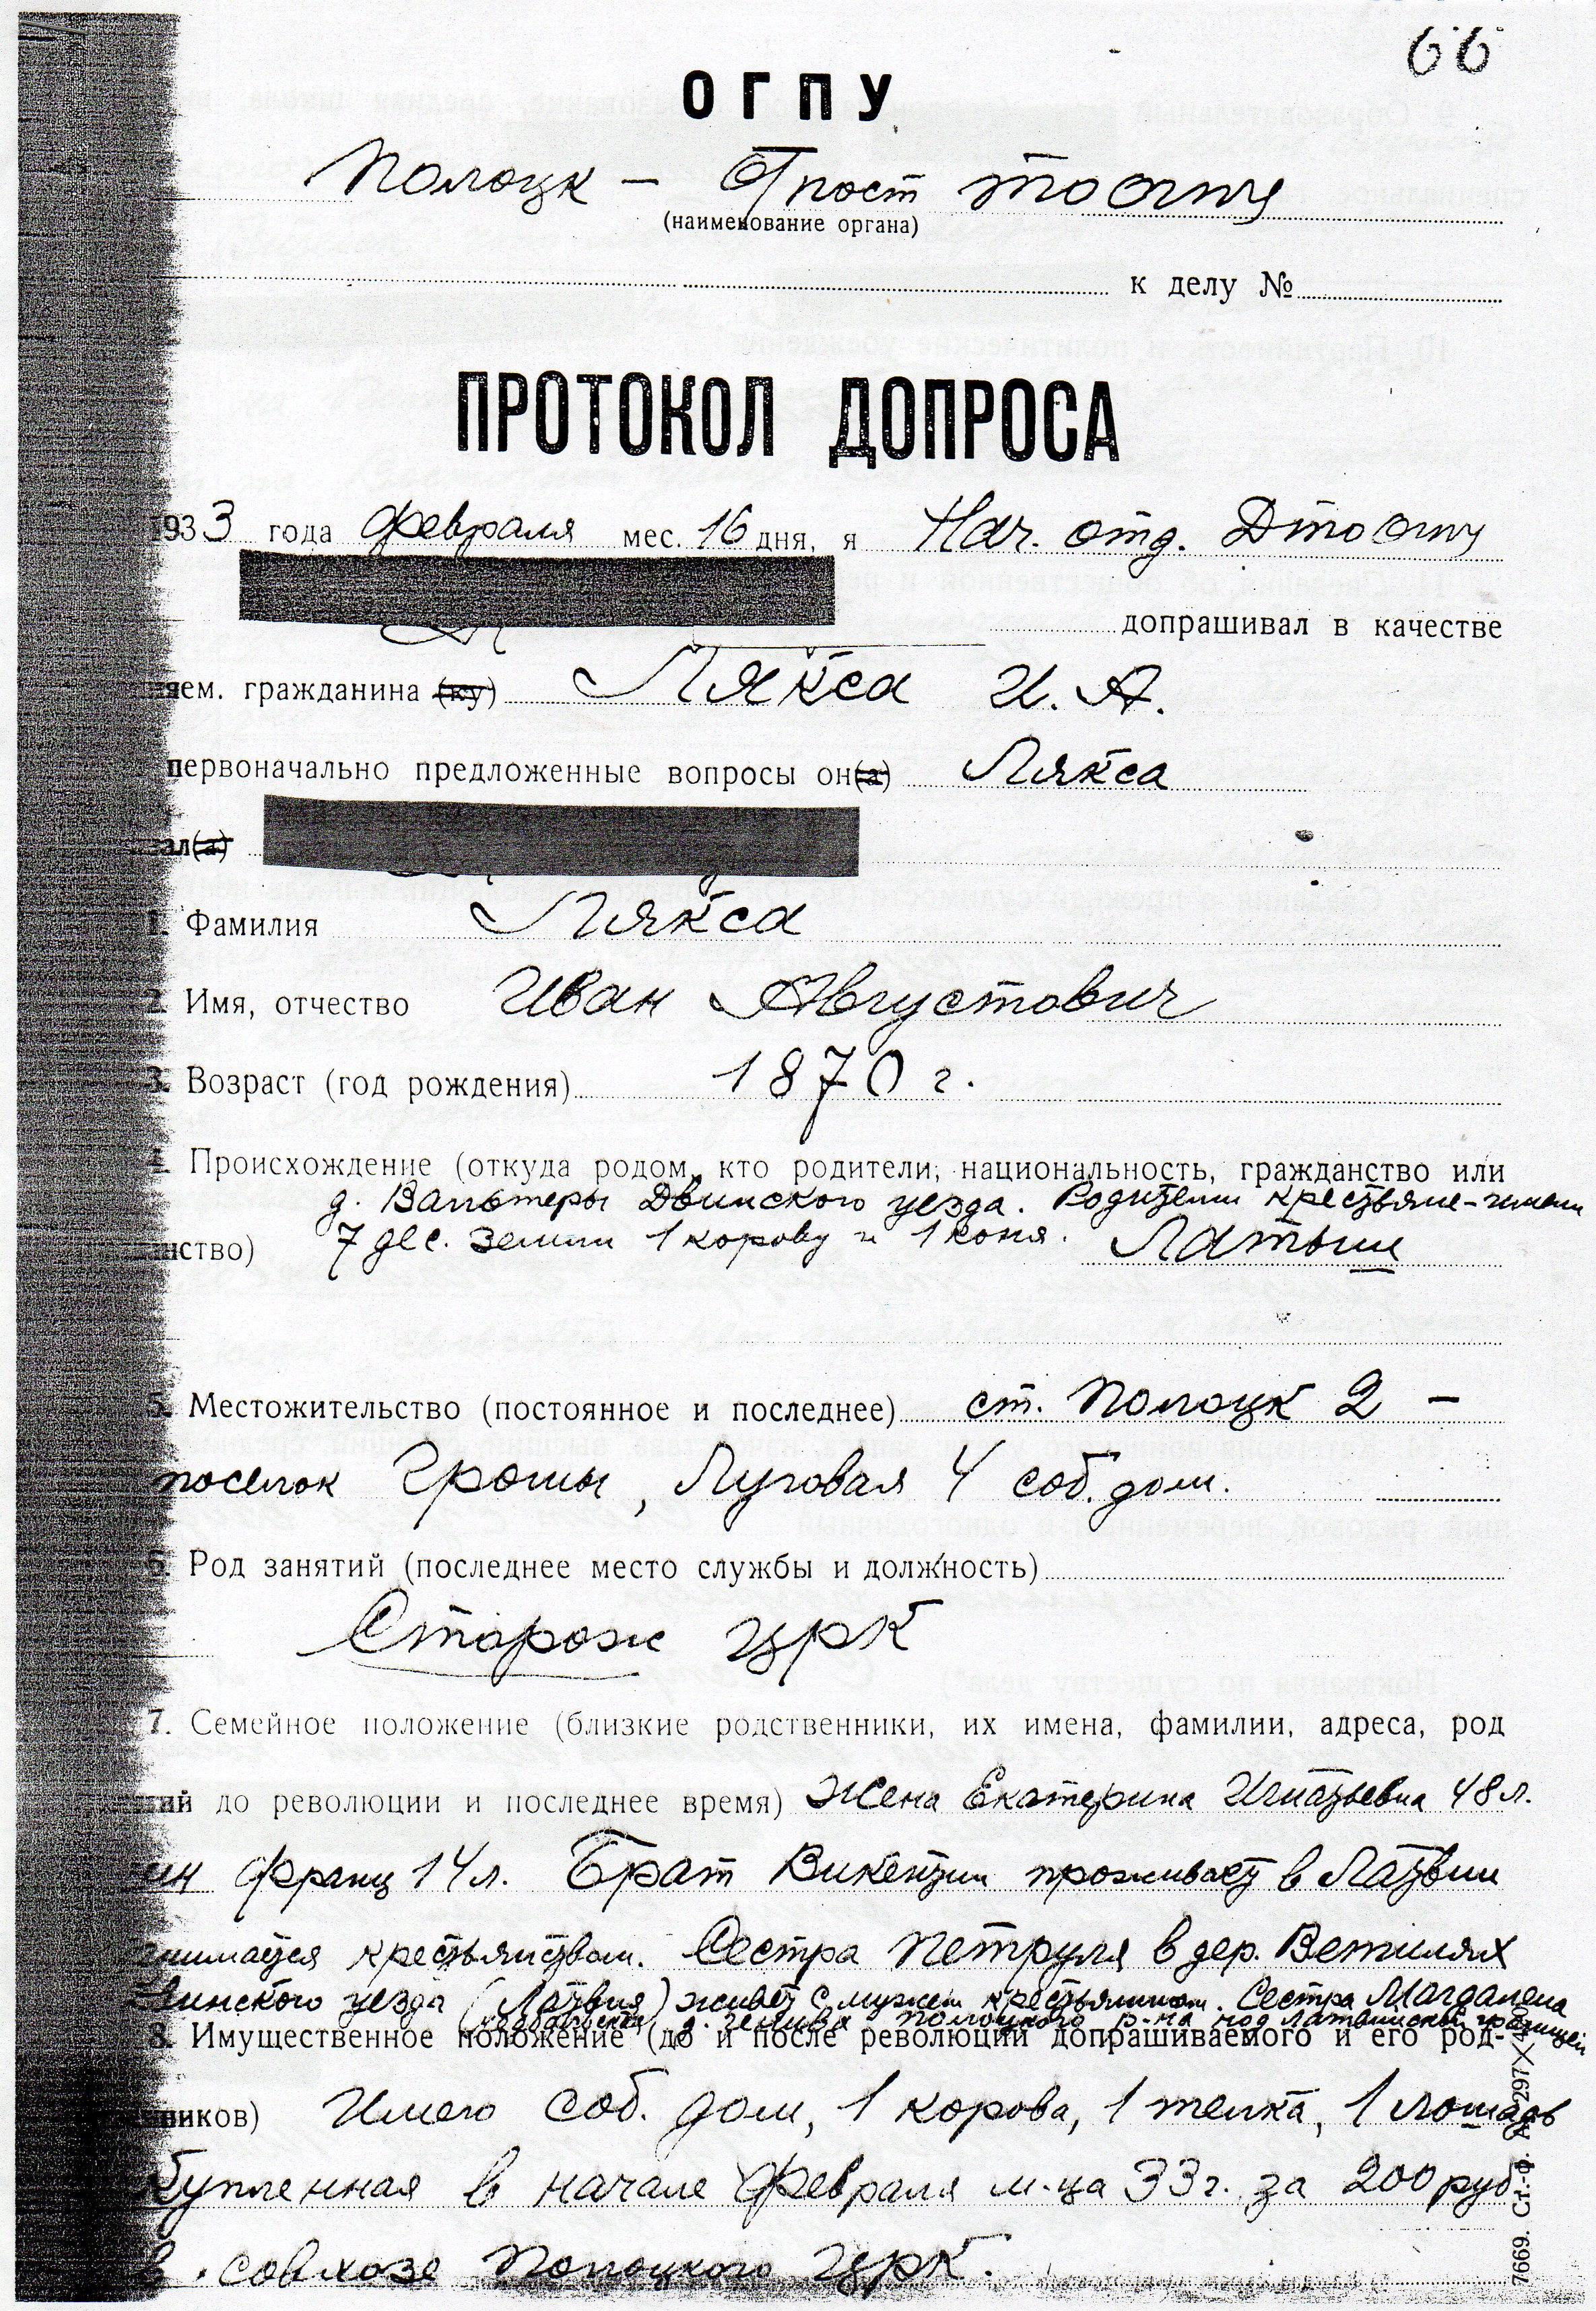 66
ОГПУ
Полоцк — Опост ТООГПУ
(наименование органа)
к делу №
ПРОТОКОЛ ДОПРОСА
1933 года февраля мес. 16 дня, я Нач. отд. ДТООГПУ
допрашивал в качестве
яем. гражданина (ку) Лякса И. А.
первоначально предложенные вопросы он(а) Лякса
ал(а)
1. Фамилия Лякса
2. Имя, отчество Иван Августович
3. Возраст (год рождения) 1870 г.
4. Происхождение (откуда родом, кто родители, национальность, гражданство или
д. Вальтеры Двинского уезда. Родители крестьяне-имели
нство) 7 дес. земли 1 корову и 1 коня. Латыш
5. Местожительство (постоянное и последнее) ст. Полоцк 2 —
поселок Громы, Луговая 4 соб. дом.
6. Род занятий (последнее место службы и должность)
Сторож ЦРК
7. Семейное положение (близкие родственники, их имена, фамилии, адреса, род
тий до революции и последнее время) Жена Екатерина Игнатьевна 48 л.
ын Франц 14 л. Брат Викентий проживает в Латвии
анимается крестьянством. Сестра Петруля в дер. Ветилях
Двинского уезда (Латвия) живет с мужем крестьянином. Сестра Магдалена
д. полоцкого р-на под латвийской границей
8. Имущественное положение (до и после революции допрашиваемого и его род-
нников) Имею соб. дом, 1 корова, 1 телка, 1 лошадь
купленная в начале февраля м-ца 33 г. за 200 руб.
в совхозе Полоцкого ЦРК.
7669. Ст.-ф. 297×420